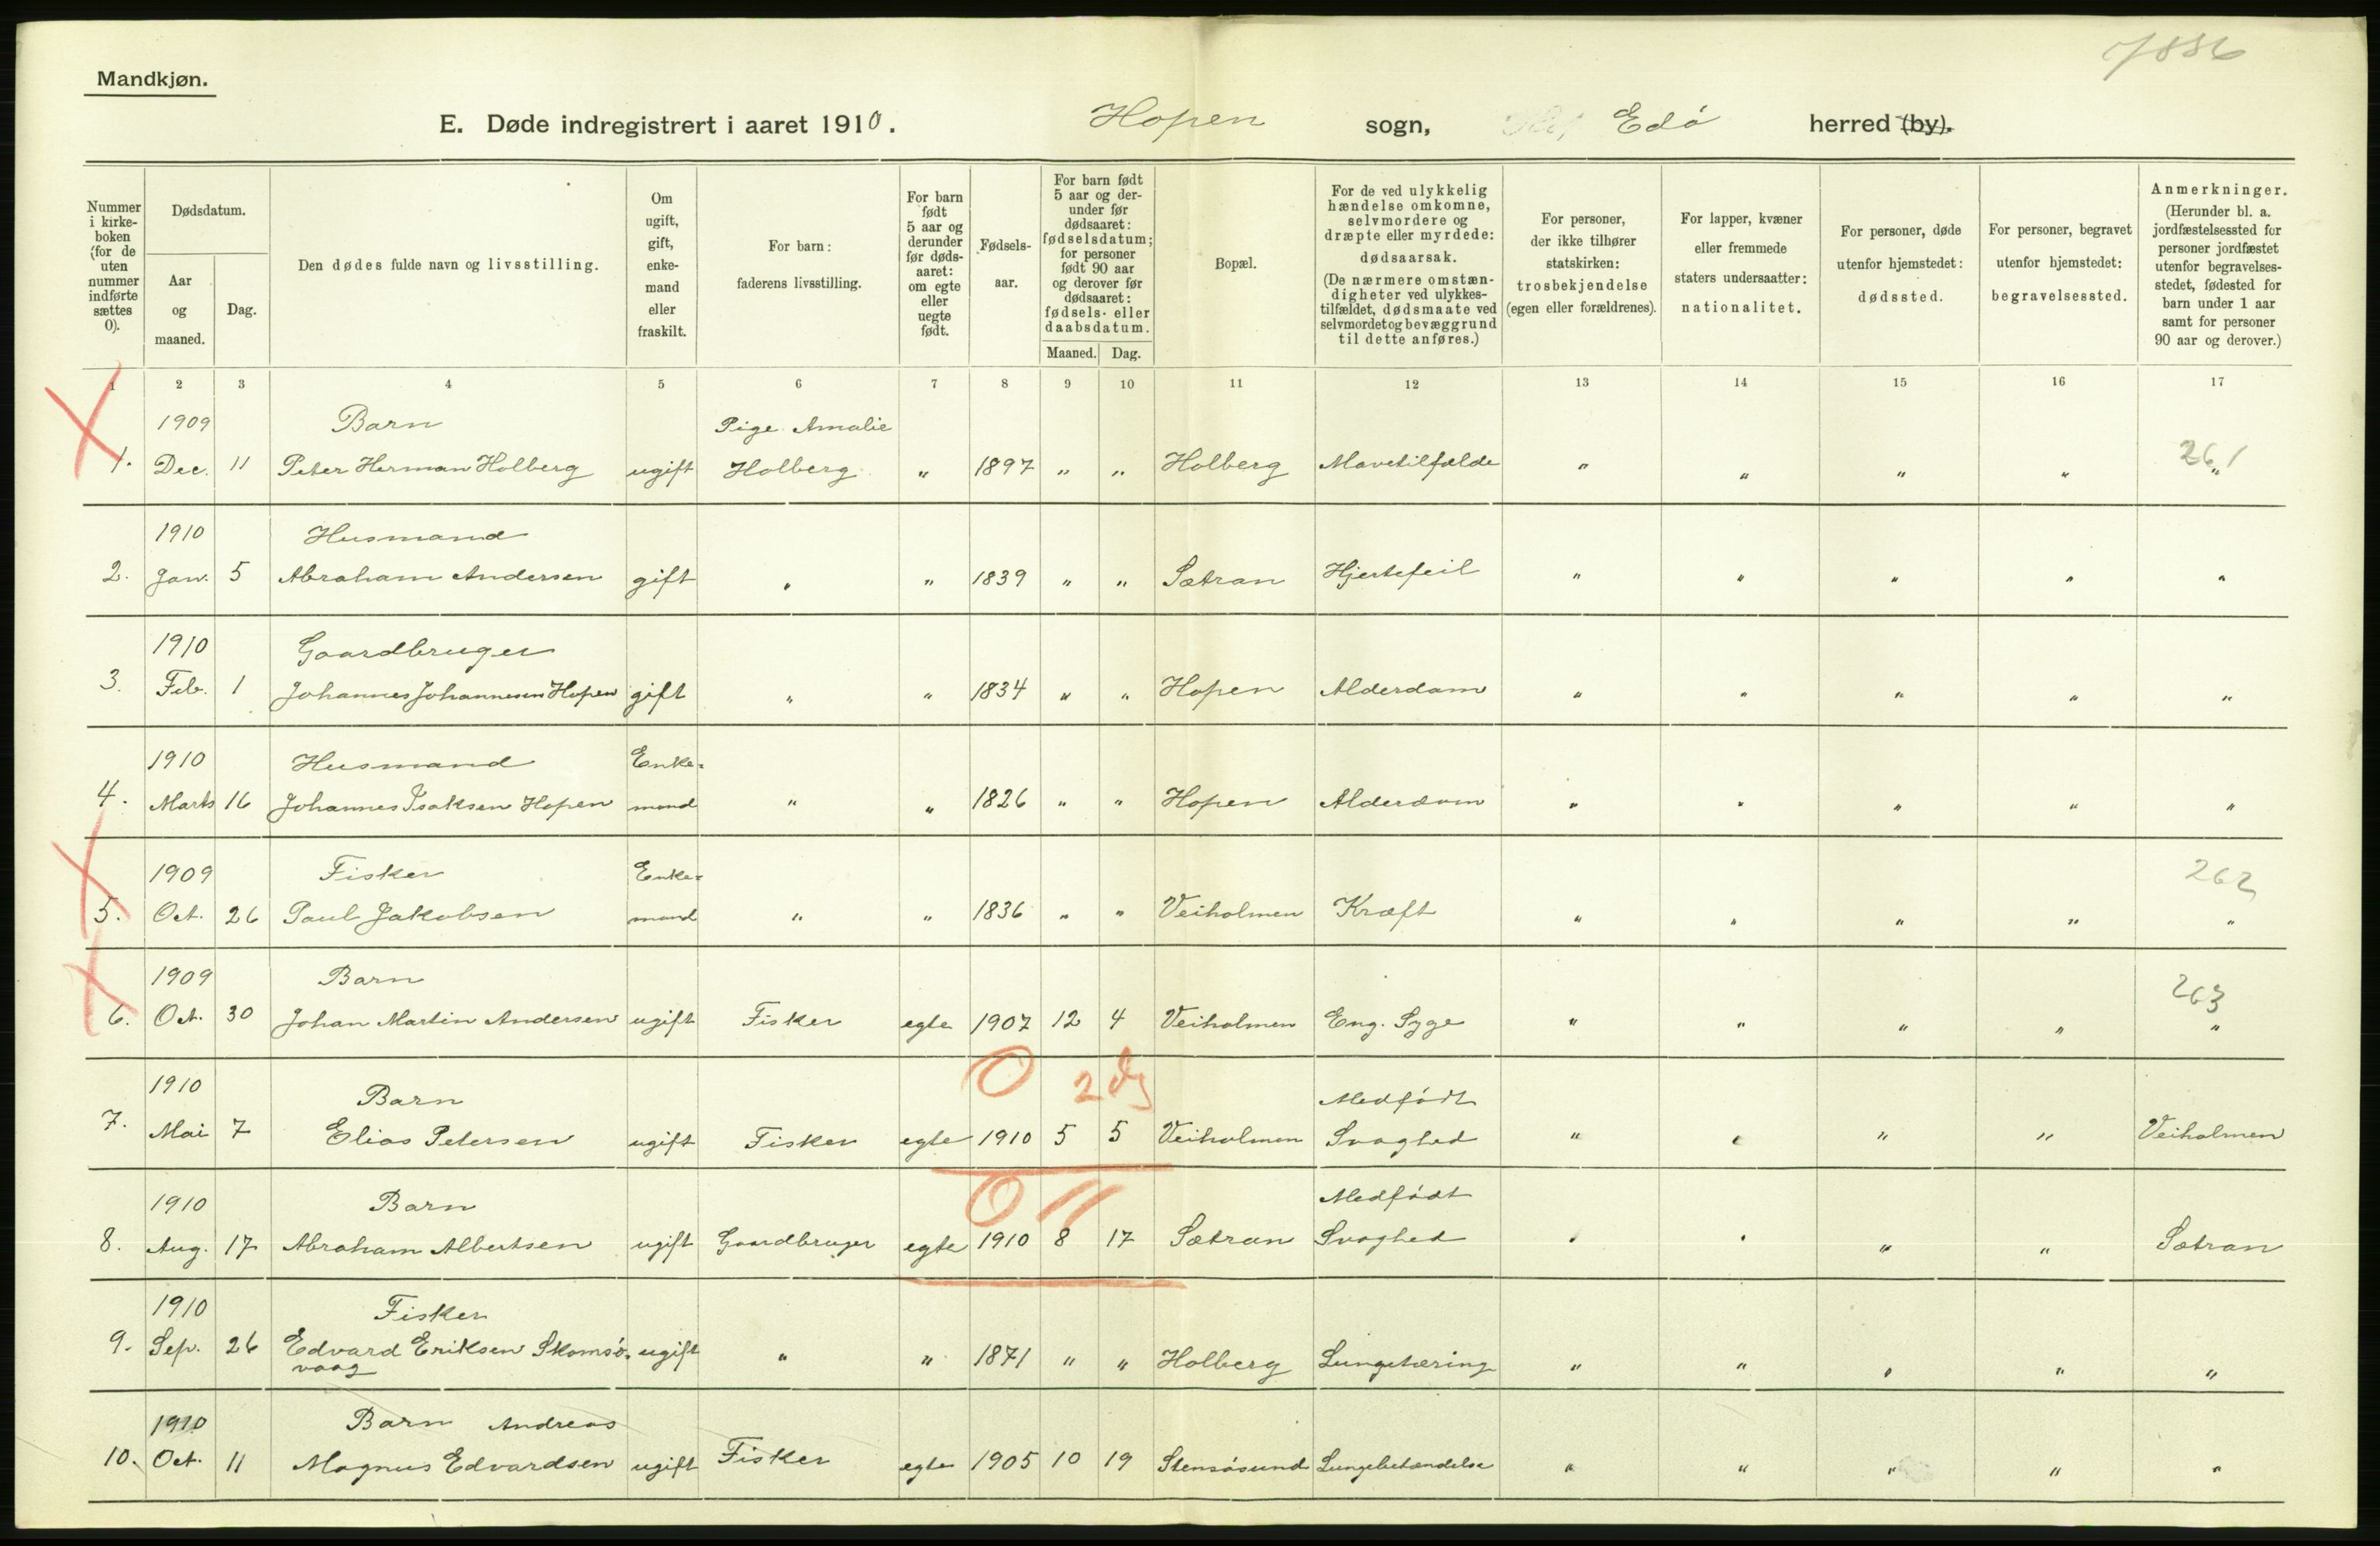 7886
Mandkjøn.
E. Døde indregistrert i aaret 1910. Hopen sogn, Edö herred (by).
Nummer i kirke-boken (for de uten nummer indførte sættes 0).
Dødsdatum.
Aar og maaned.
Dag.
Den dødes fulde navn og livsstilling.
Om ugift, gift, enke-mand eller fraskilt.
For barn: faderens livsstilling.
For barn født 5 aar og derunder før døds-aaret: om egte eller uegte født.
Fødsels-aar.
For barn født 5 aar og der-under før dødsaaret: fødselsdatum; for personer født 90 aar og derover før dødsaaret: fødsels- eller daabsdatum.
Maaned. Dag.
Bopæl.
For de ved ulykkelig hændelse omkomne, selvmordere og dræpte eller myrdede: dødsaarsak.
(De nærmere omstæn-digheter ved ulykkes-tilfældet, dødsmaate ved selvmordet og bevæggrund til dette anføres.)
For personer, der ikke tilhører statskirken: trosbekjendelse (egen eller forældrenes).
For lapper, kvæner eller fremmede staters undersaatter: nationalitet.
For personer, døde utenfor hjemstedet: dødssted.
For personer, begravet utenfor hjemstedet: begravelsessted.
Anmerkninger.
(Herunder bl. a. jordfæstelsessted for personer jordfæstet utenfor begravelses-stedet, fødested for barn under 1 aar samt for personer 90 aar og derover.)
1 2 3 4 5 6 7 8 9 10 11 12 13 14 15 16 17
1909 Barn Pige Amalie
1. Dec. 11 Peter Herman Holberg ugift Holberg " 1897 " " Holberg Mavetilfælde " " " " 261 "
1910 Husmand
2. Jan. 5 Abraham Andersen gift " " 1839 " " Sætran Hjertefeil " " " " "
1910 Gaardbruger
3. Feb. 1 Johannes Johannesen Hopen gift " " 1834 " " Hopen Alderdom " " " " "
1910 Husmand Enke=
4. Marts 16 Johannes Isaksen Hopen mand " " 1826 " " Hopen Alderdom " " " " "
1909 Fisker Enke= 262
5. Oct. 26 Paul Jakobsen mand " " 1836 " " Veiholmen Kræft " " " " "
1909 Barn 263
6. Oct. 30 Johan Martin Andersen ugift Fisker egte 1907 12 4 Veiholmen Eng. Syge " " " " "
1910 Barn 0 2 dg Medfödt
7. Mai 7 Elias Petersen ugift Fisker egte 1910 5 5 Veiholmen Svaghed " " " " Veiholmen
1910 Barn 0 " Medfödt
8. Aug. 17 Abraham Albertsen ugift Gaardbruger egte 1910 8 17 Sætran Svaghed " " " " Sætran
1910 Fisker
9. Sep. 26 Edvard Eriksen Skomsö- ugift " " 1871 " " Holberg Lungetæring " " " " "
vaag
1910 Barn Andreas
10. Oct. 11 Magnus Edvardsen ugift Fisker egte 1905 10 19 Stensösund Lungebetændelse " " " " "